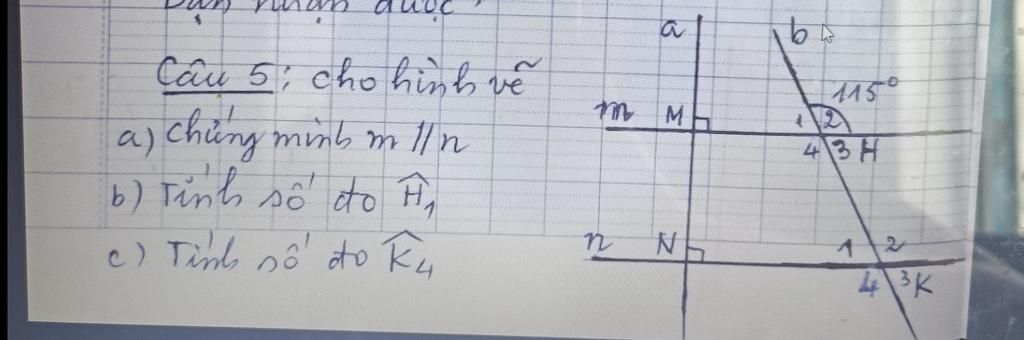 Câu 5: cho hình vẽ
a) chứng minh m // n
b) Tính số đo Ĥ₁
c) Tính số đo K̂₄
a
b
115°
m M
1 2
4 3 H
n N
1 2
4 3 K